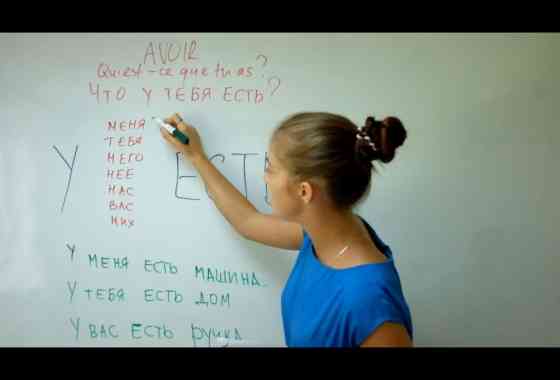 AVOIR
Qu'est-ce que tu as?
ЧТО У ТЕБЯ ЕСТЬ?
МЕНЯ
ТЕБЯ
НЕГО
У НЕЕ ЕСТЬ
НАС
ВАС
НИХ
У МЕНЯ ЕСТЬ МАШИНА.
У ТЕБЯ ЕСТЬ ДОМ
У ВАС ЕСТЬ РУЧКА